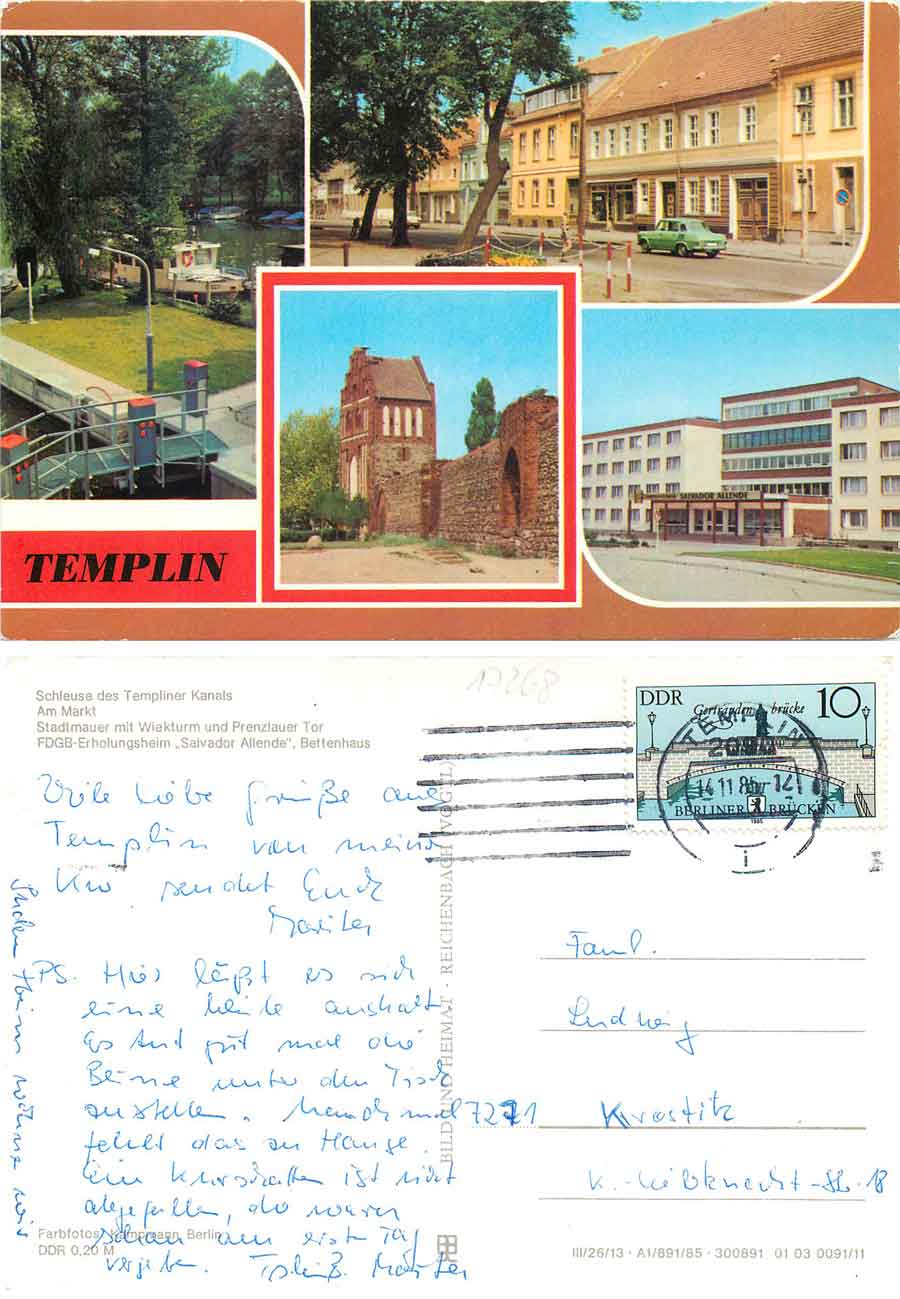 SALVADOR ALLENDE
TEMPLIN
17268
Schleuse des Templiner Kanals
Am Markt
Stadtmauer mit Wiekturm und Prenzlauer Tor
FDGB-Erholungsheim „Salvador Allende", Bettenhaus
DDR 10
Gertraudenbrücke
BERLINER BRÜCKEN
1985
TEMPLIN
2090
14.11.85-12
i
Viele liebe Grüße aus
Templin von meiner
Kur sendet Euch
PS. Hier läßt es sich
eine Weile aushalt.
Es tut gut mal die
Beine unter den Tisch
zu stellen. Manchmal
fehlt das zu Hause.
Ein Kurschatten ist nicht
abgefallen, die waren
schon am ersten Tag
vergeben.
BILD UND HEIMAT · REICHENBACH (VOGTL)
Faml.
Ludwig
7271 Krostitz
K.-Liebknecht-Str. 18
Farbfotos: Kampmann, Berlin
DDR 0,20 M
III/26/13 · A1/891/85 · 300891 01 03 0091/11